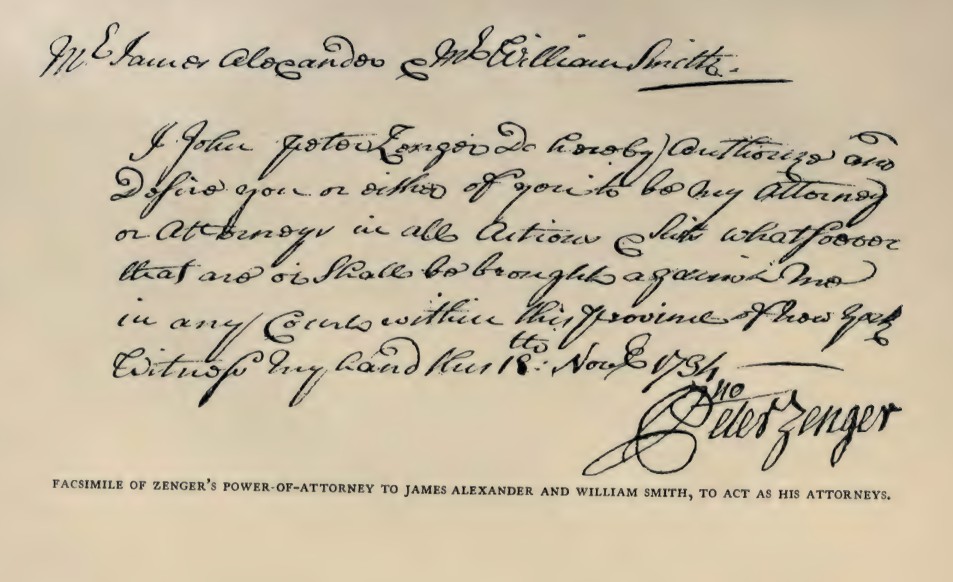 Mr. James Alexander & Mr. William Smith.
I John peter Zenger Do hereby Authorize and
Desire you or either of you to be my Attorney
or Attorneys in all Actions & Suits whatsoever
that are or Shall be brought against me
in any Courts within this province of New York
Witness my hand this 18th: Novr 1734
Jno
Peter Zenger
FACSIMILE OF ZENGER'S POWER-OF-ATTORNEY TO JAMES ALEXANDER AND WILLIAM SMITH, TO ACT AS HIS ATTORNEYS.